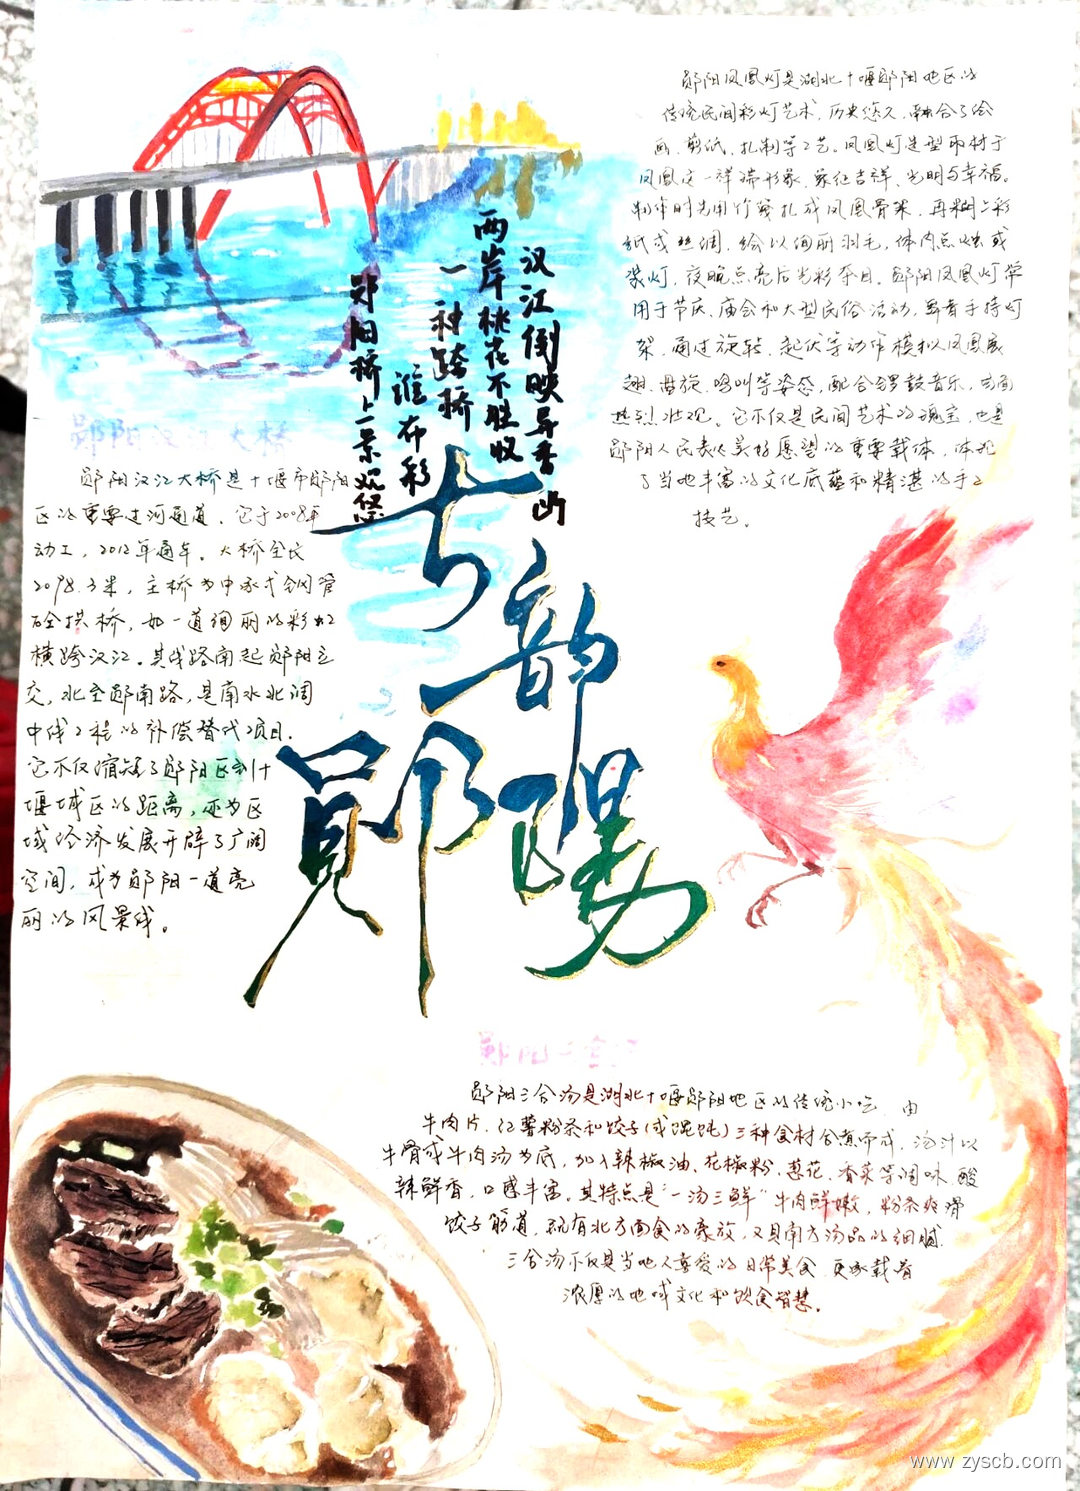 郧阳凤凰灯是湖北十堰郧阳地区的
传统民间彩灯艺术,历史悠久,融合了绘
画、剪纸、扎制等工艺。凤凰灯造型取材于
凤凰这一祥瑞形象,象征吉祥、光明与幸福。
制作时先用竹篾扎成凤凰骨架,再糊上彩
纸或丝绸,绘以绚丽羽毛,体内点烛或
装灯,夜晚点亮后光彩夺目。郧阳凤凰灯常
用于节庆、庙会和大型民俗活动,舞者手持灯
架,通过旋转、起伏等动作模拟凤凰展
翅、盘旋、鸣叫等姿态,配合锣鼓音乐,场面
热烈壮观。它不仅是民间艺术的瑰宝,也是
郧阳人民表达美好愿望的重要载体,体现
了当地丰富的文化底蕴和精湛的手工
技艺。
汉江倒映异香山
两岸桃花不胜收
一种跨桥谁布彩
郧阳桥上景观悠
郧阳汉江大桥
郧阳汉江大桥是十堰市郧阳
区的重要过河通道,它于2008年
动工,2012年通车。大桥全长
2098.3米,主桥为中承式钢管
砼拱桥,如一道绚丽的彩虹
横跨汉江。其线路南起郧阳立
交,北至郧南路,是南水北调
中线工程的补偿替代项目.
它不仅缩短了郧阳区到十
堰城区的距离,还为区
域经济发展开辟了广阔
空间,成为郧阳一道亮
丽的风景线。
七韵
郧陽
郧阳三合汤
郧阳三合汤是湖北十堰郧阳地区的传统小吃,由
牛肉片、红薯粉条和饺子(或馄饨)三种食材合煮而成,汤汁以
牛骨或牛肉汤为底,加入辣椒油、花椒粉、葱花、香菜等调味,酸
辣鲜香,口感丰富。其特点是“一汤三鲜”牛肉鲜嫩,粉条爽滑
饺子筋道,既有北方面食的豪放,又具南方汤品的细腻.
三合汤不仅是当地人喜爱的日常美食 更承载着
浓厚的地域文化和饮食智慧。
www.zyscb.com